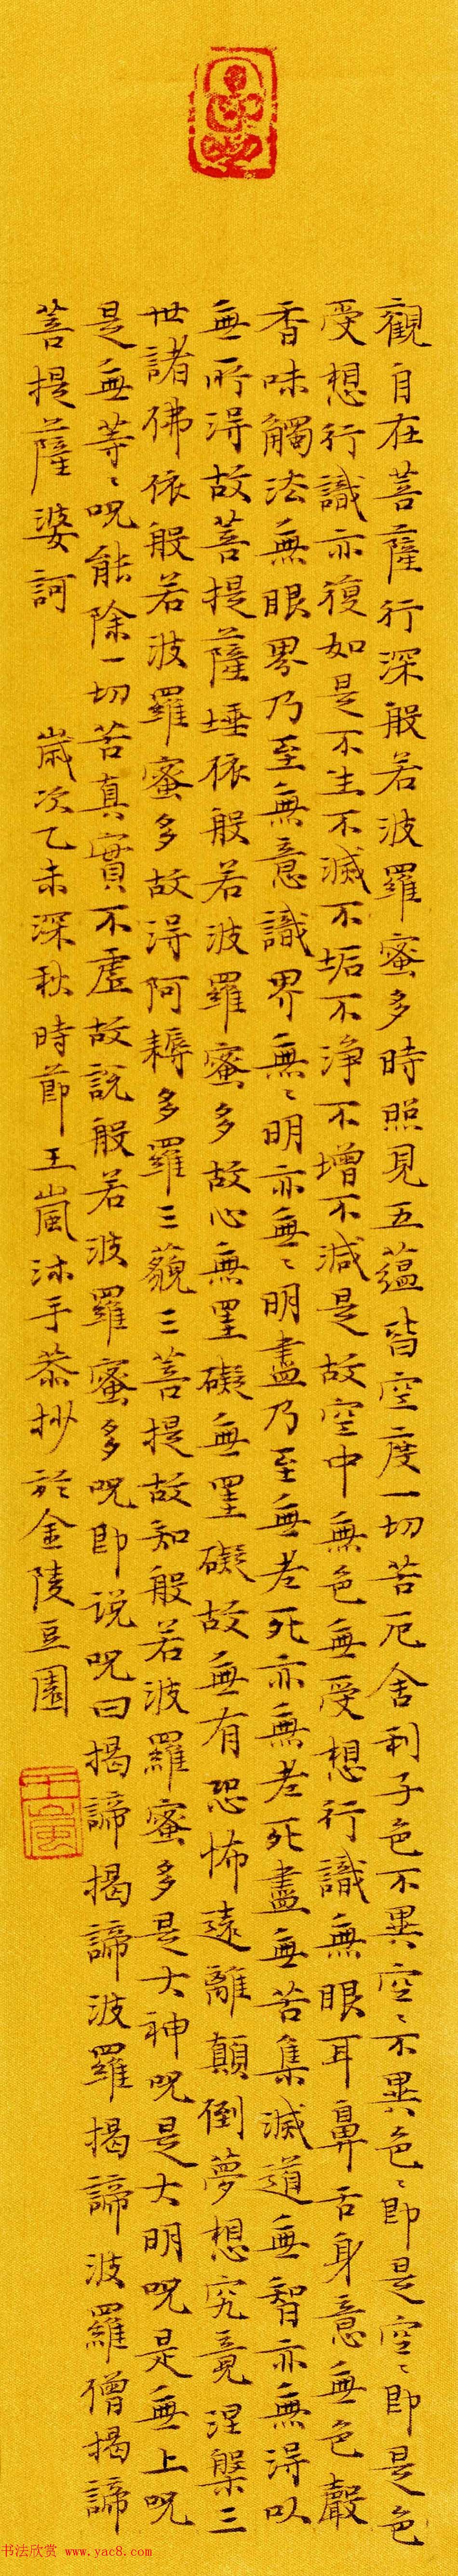 觀自在菩薩行深般若波羅蜜多時照見五蘊皆空度一切苦厄舍利子色不異空〻不異色〻即是空〻即是色
受想行識亦復如是不生不滅不垢不净不增不減是故空中無色無受想行識無眼耳鼻舌身意無色聲
香味觸法無眼界乃至無意識界無〻明亦無〻明盡乃至無老死亦無老死盡無苦集滅道無智亦無得以
無所得故菩提薩埵依般若波羅蜜多故心無罣礙無罣礙故無有恐怖遠離顛倒夢想究竟涅槃三
世諸佛依般若波羅蜜多故得阿耨多羅三藐三菩提故知般若波羅蜜多是大神呪是大明呪是無上呪
是無等〻呪能除一切苦真實不虛故說般若波羅蜜多呪即说呪曰揭諦揭諦波羅揭諦波羅僧揭諦
菩提薩婆訶 歲次乙未深秋時節王嵐沐手恭抄於金陵豆園
王嵐
书法欣赏 www.yac8.com